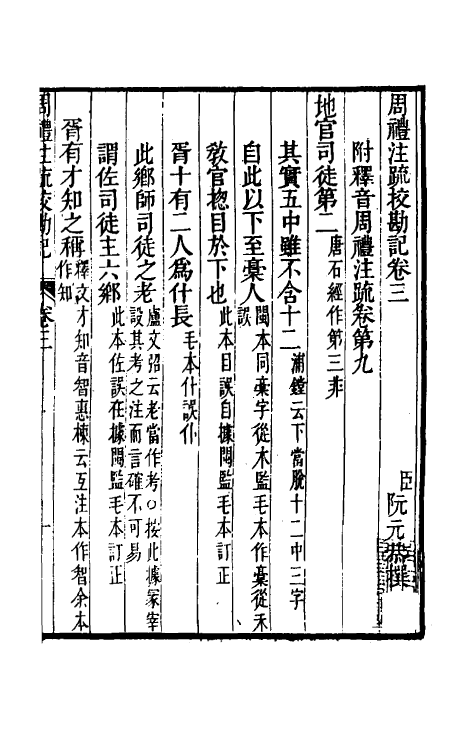 周禮注疏挍勘記卷三
臣阮元恭撰
附釋音周禮注疏卷第九
地官司徒第二 唐石經作第三非
其實五中雖不含十二 浦鏜云下當脫十二中三字
自此以下至槀人 閩本同槀字從木監毛本作稾從禾誤
敎官揔目於下也 此本目誤自據閩監毛本訂正
胥十有二人爲什長 毛本什誤仆
此鄉師司徒之老 盧文弨云老當作考〇按此據冢宰設其考之注而言確不可易
謂佐司徒主六鄉 此本佐誤在據閩監毛本訂正
胥有才知之稱 釋文才知音智惠棟云互注本作智余本作知
周禮注疏挍勘記 卷三 一